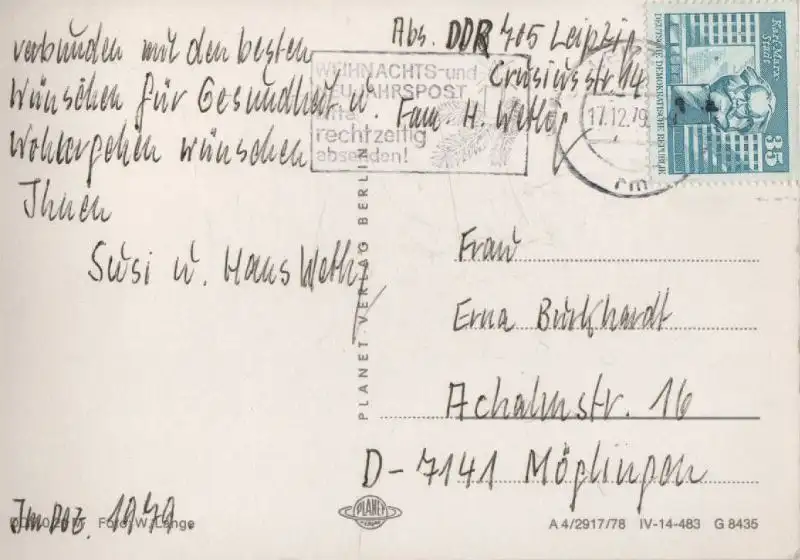 verbunden mit den besten
Wünschen für Gesundheit u.
Wohlergehen wünschen
Ihnen
Susi u. Hans Weth
Im Dez. 1979
Foto: W. Lange
Abs. DDR 705 Leipzig
Crusiusstr. 14
Fam. H.
WEIHNACHTS- und
NEUJAHRSPOST
bitte
rechtzeitig
absenden!
17.12.79
Karl-Marx-
Stadt
DEUTSCHE DEMOKRATISCHE REPUBLIK
35
PLANET-VERLAG BERLIN
Frau
Erna Burkhardt
Achalmstr. 16
D-7141 Möglingen
PLANET
A 4/2917/78 IV-14-483 G 8435